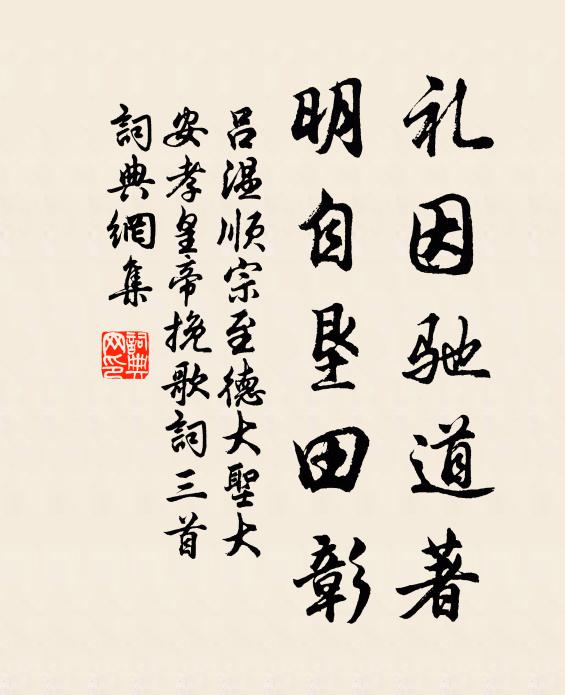 礼因驰道著
明自垦田彰
吕温顺宗至德大聖大
安孝皇帝挽歌詞三首
詞典網集
詞典网印